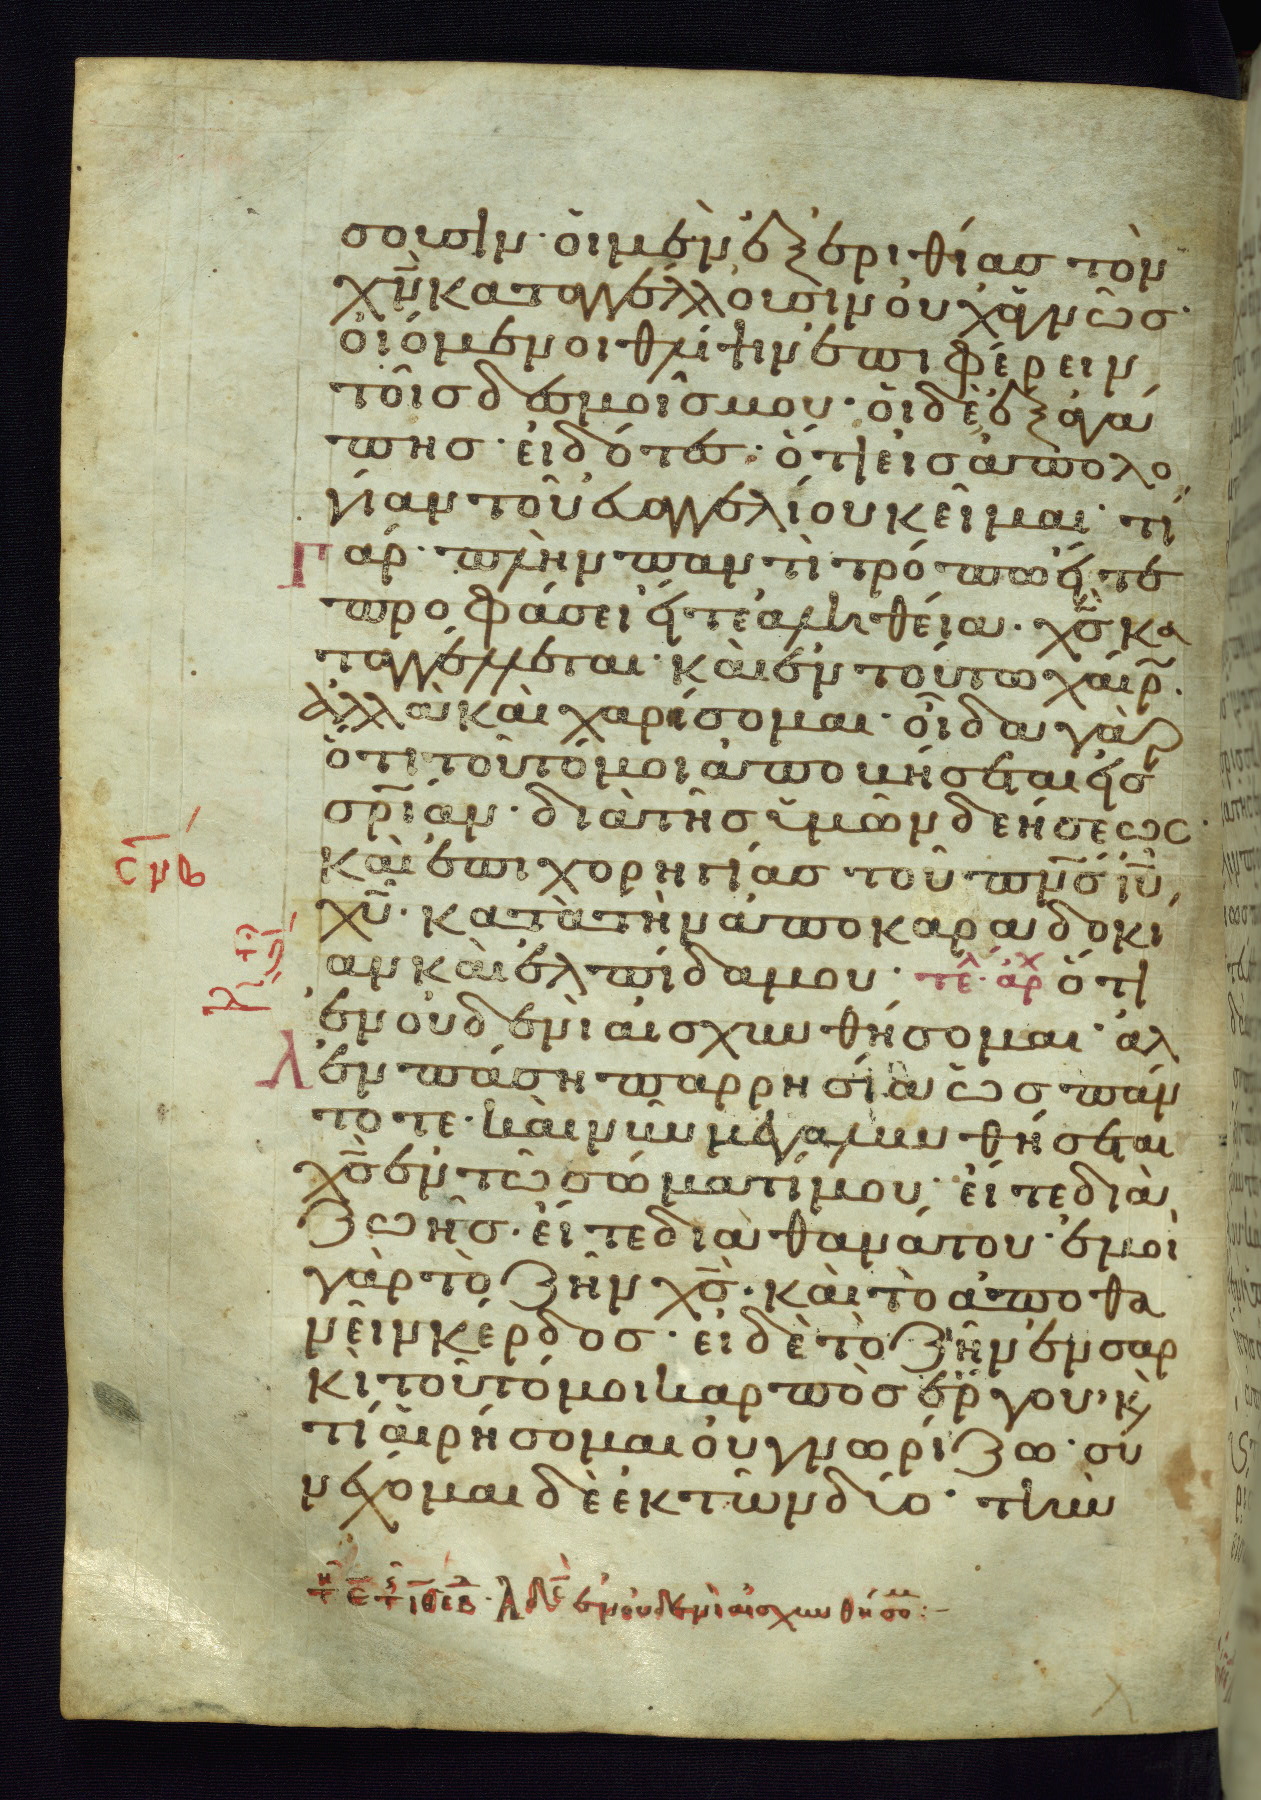 σουσιν· ὅι μὲν ἐξ ἐριθίασ τὸν
χ̅ν̅ καταγγέλλουσιν οὐχ ἁγνῶσ·
οἰόμενοι θλίψιν ἐπιφέρειν
τοῖσ δεσμοῖσ μου· ὅι δὲ ἐξ ἀγά
πησ· εἰδότεσ· ὅτι εἰσ ἀπολο
γίαν τοῦ ἐυαγγελίου κεῖμαι· τί
γάρ· πλὴν παντὶ τρόπω ἐίτε
προφάσει ἐίτε ἀληθεία· χ̅σ̅ κα
ταγγέλλεται· κὰι ἐν τούτω χάιρ̅.
ἀλλὰ κὰι χαρίσομαι· οἶδα γὰρ
ὅτι τοῦτό μοι ἀποβήσεται εἰσ
σ̅ρ̅ίαν· διὰ τῆσ ὑμῶν δεήσεωσ·
κὰι ἐπιχορηγίασ τοῦ π̅ν̅σ̅ ἰ̅υ̅
χ̅υ̅· κατὰ τὴν ἀποκαραδοκί
αν κὰι ἐλπίδα μου· τε̅λ· ἀρχ ὅτι
ἐν οὐδενὶ αἰσχυνθήσομαι· ἀλ
λ ἐν πάση παρρησία ὡσ πάν
τοτε· κὰι νῦν μεγαλυνθήσεται
χ̅σ̅ ἐν τῶ σώματί μου· εἴτε διὰ
ζωῆσ· εἴτε διὰ θανάτου· ἐμοὶ
γὰρ τὸ ζῆν χ̅σ̅· κὰι τὸ ἀποθα
νεῖν κέρδοσ· εἰ δὲ τὸ ζῆν ἐν σαρ
κὶ τοῦτό μοι καρπὸσ ἔργου· κ̀
τί ἁιρήσομαι οὐ γνωρίζω· συ
νέχομαι δὲ ἐκ τῶν δύο· τὴν
σ̅μ̅β
ἀδε̅ ἐν οὐδενὶ αἰσχυνθήσο̅μ:–